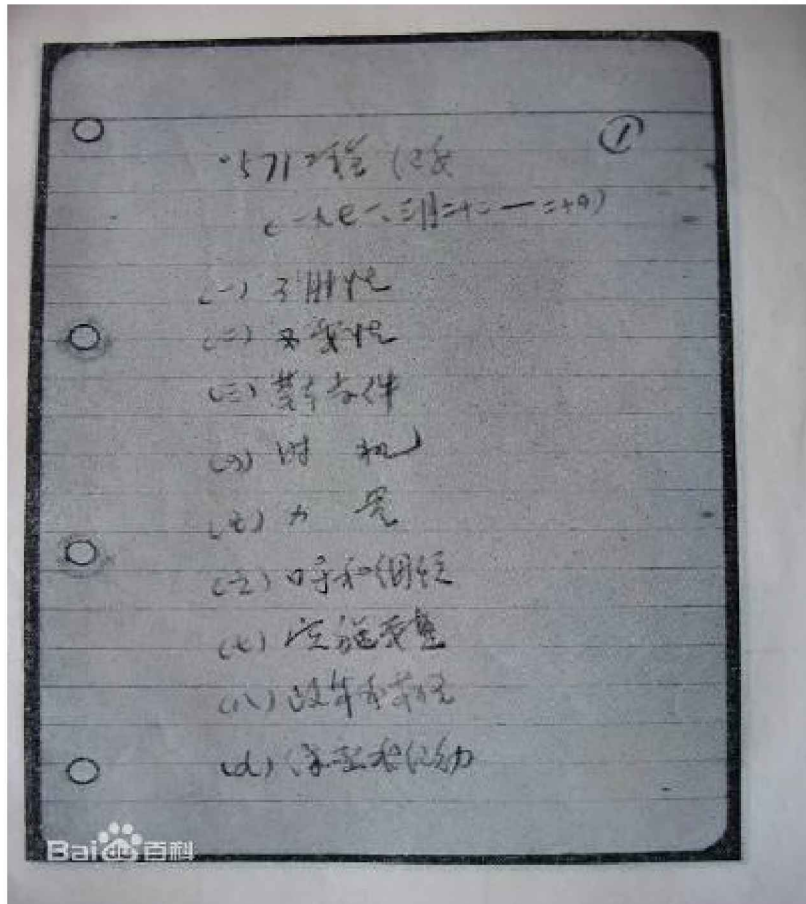 ①
“571工程”纪要
（一九七一、三月二十二——二十四）
（一）可能性
（二）必要性
（三）基本条件
（四）时 机
（五）力 量
（六）口号和纲领
（七）实施要点
（八）政策和策略
（九）保密和纪律
Bai百科